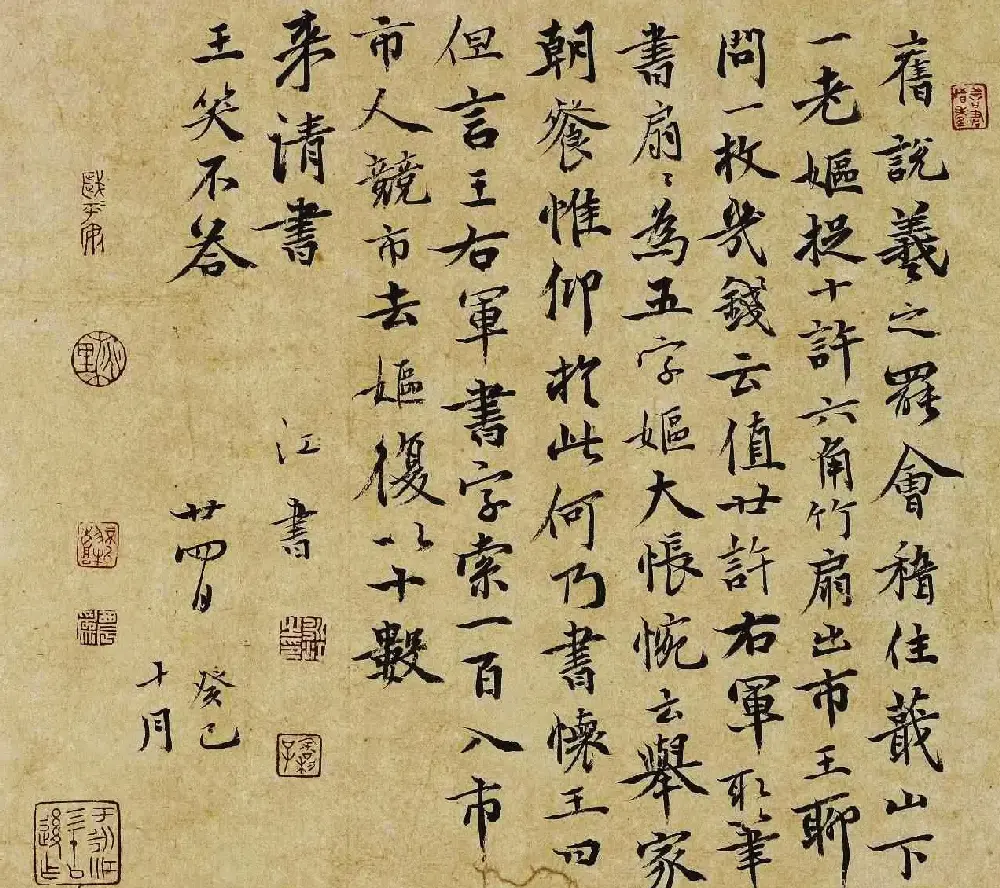 舊說羲之罷會稽住蕺山下
一老嫗捉十許六角竹扇出市王聊
問一枚幾錢云值廿許右軍取筆
書扇扇為五字嫗大悵惋云舉家
朝飡惟仰於此何乃書壞王曰
但言王右軍書字索一百入市
市人競市去嫗復以十數
来請書
王笑不答
江書
廿四日
癸巳
十月